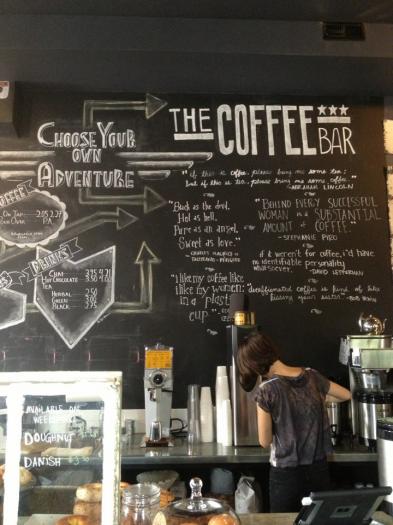 THE COFFEE BAR
CHOOSE YOUR
OWN
ADVENTURE
"if this is coffee, please bring me some tea;
but if this is tea, please bring me some coffee."
ABRAHAM LINCOLN
"Black as the devil,
Hot as hell,
Pure as an angel,
Sweet as love."
"BEHIND EVERY SUCCESSFUL
WOMAN is A SUBSTANTIAL
AMOUNT of COFFEE."
-STEPHANIE PIRO
if it weren't for coffee, i'd have
no identifiable personality
whatsoever.
-DAVID LETTERMAN
"i like my coffee like
i like my women:
in a plastic
cup."
"decaffeinated coffee is kind of like
kissing your sister."
DRINKS
CHAI
HOT CHOCOLATE
TEA
HERBAL 2.50
GREEN
BLACK
AVAILABLE
DOUGHNUT
DANISH